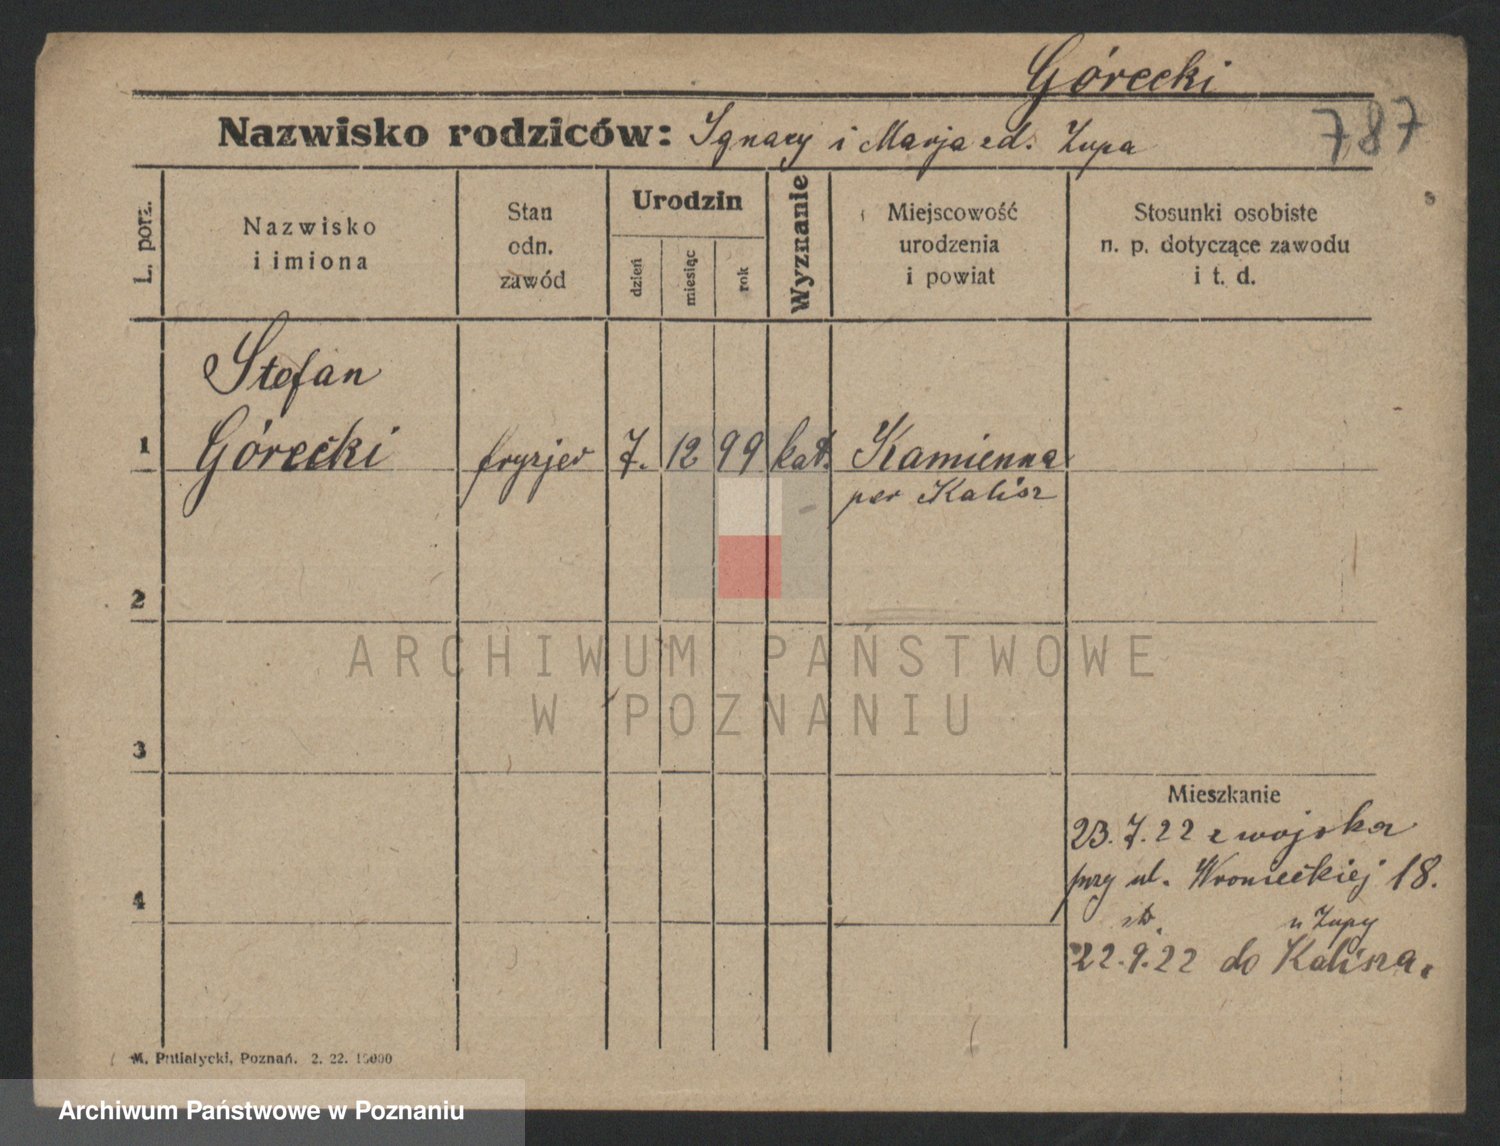 Górecki
Nazwisko rodziców: Ignacy i Marja zd. Zupa
787
L. porz.
Nazwisko
i imiona
Stan
odn.
zawód
Urodzin
dzień
miesiąc
rok
Wyznanie
Miejscowość
urodzenia
i powiat
Stosunki osobiste
n. p. dotyczące zawodu
i t. d.
1
Stefan
Górecki
fryzjer
7.
12
99
kat.
Kamienna
pow Kalisz
2
ARCHIWUM PAŃSTWOWE
W POZNANIU
3
4
Mieszkanie
23.7.22 z wojska
przy ul. Wronieckiej 18.
u Zupy
22.9.22 do Kalisza.
M. Putiatycki, Poznań. 2. 22. 15000
Archiwum Państwowe w Poznaniu